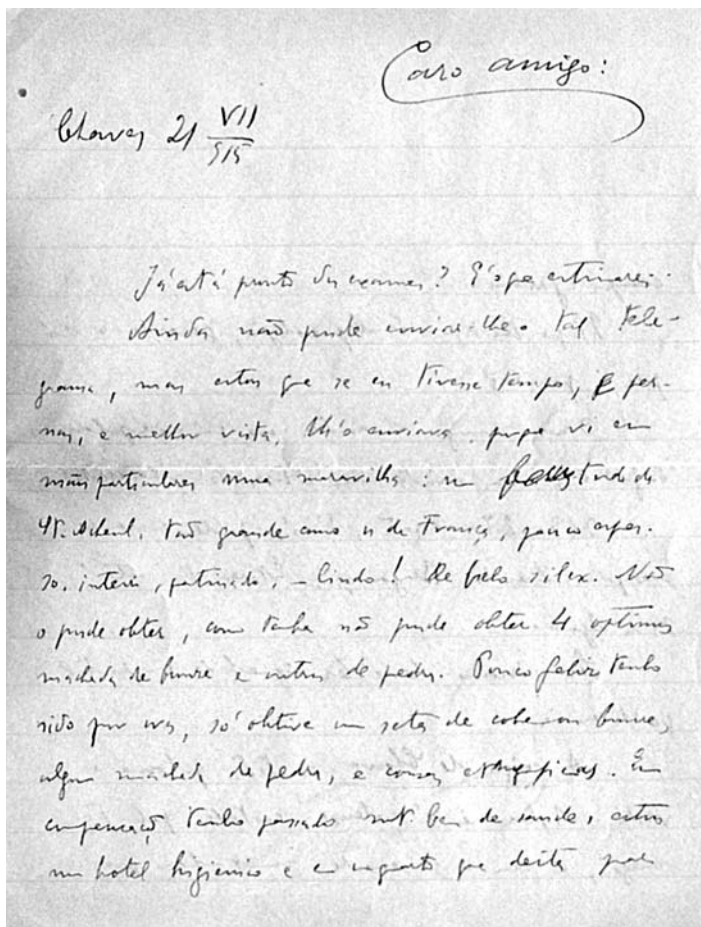 Caro amigo:
Chaves 21 VII
915
Já está pronto dos exames? É o que estimarei.
Ainda não pude enviar-lhe o tal tele-
grama, mas estou que se eu tivesse tempo, e per-
nas, e melhor vista, lh'o enviava, porque vi em
mãos particulares uma maravilha: um
St. Acheul, tão grande como os de França, pouco espes-
so, inteiro, patinado, – lindo! De belo silex. Não
o pude obter, como tambem não pude obter 4 optimos
machados de bronze e outros de pedra. Pouco feliz tenho
sido por ora, só obtive uma seta de cobre ou bronze,
alguns machados de pedra, e cousas ethnograficas. Em
compensação tenho passado mt. bem de saude, estou
num hotel higienico e em quarto que deita para